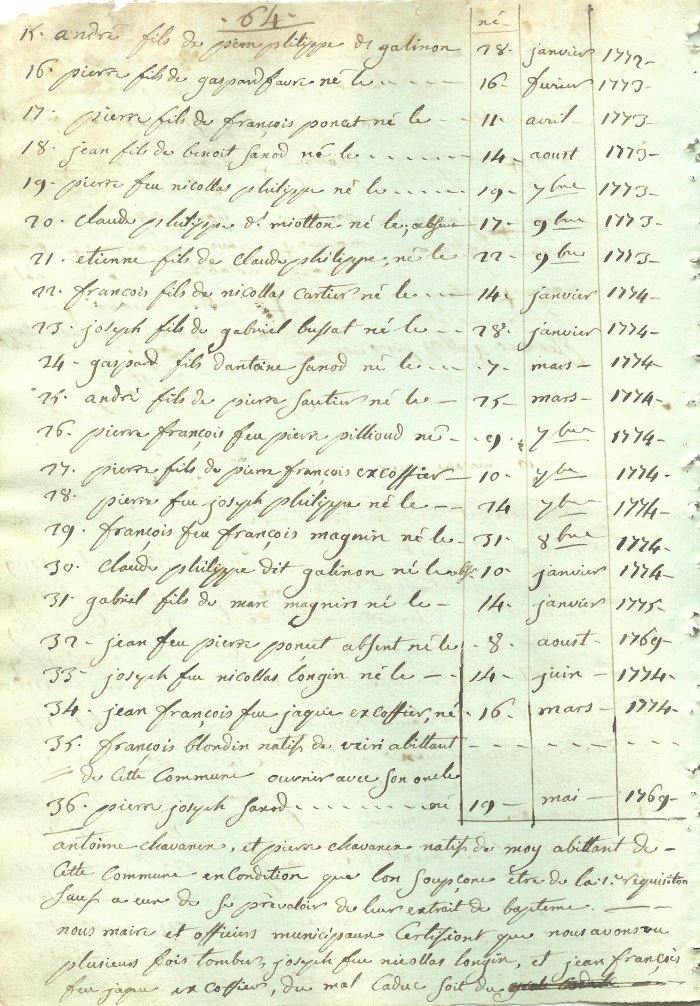 - 64 -
né -
15. andré fils de pierre philippe dt galinon 28. janvier 1772 -
16. pierre fils de gaspard favre né le - - - - - 16 - fevrier 1773 -
17. pierre fils de françois poncet né le - - 11 - avril - 1773 -
18. jean fils de benoit sanod né le - - - - - - 14 - aoust 1773 -
19. pierre feu nicollas philippe né le - - - - - 19 - 7bre 1773 -
20. Claude philippe dt miotton né le, absent 17 - 9bre 1773
21. etienne fils de claude philippe, né le 22 - 9bre 1773
22. françois fils de nicollas Cartier né le - - - 14 - janvier 1774 -
23. joseph fils de gabriel bussat né le - - 28. janvier 1774 -
24 - gaspard fils dantoine sanod né le - - - - 7 - mars - 1774 -
25. andré fils de pierre sautier né le - 25 - mars - 1774 -
26. pierre françois feu pierre pillioud né - - 9 - 7bre 1774 -
27. pierre fils de pierre françois excoffier - 10 - 7bre 1774 -
28. pierre feu joseph philippe né le - - 24 7bre 1774 -
29. françois feu françois magnin né le - 31 - 8bre 1774 -
30. Claude philippe dit galinon né le abs. 10 - janvier 1774 -
31. gabriel fils de marc magnin né le - 14 - janvier 1775 -
32 - jean feu pierre poncet absent né le - 8 - aoust - 1769 -
33 - joseph feu nicollas longin né le - - 14 - juin - 1774 -
34 - jean françois feu jaque excoffier, né - 16 - mars - 1774 -
35. françois blondin natif de veiri abittant - - - - - - - - - - -
// de Cette Commune ouvrier avec son oncle
36. pierre joseph sanod - - - - - - - - - - - né 19 - mai - 1769 -
antoine chavanex, et pierre chavanex natifs de moy abittant de -
Cette Commune en Condition que lon soupçone être de la 1.e requisiton
sauf a eux de se prevaloir de leur extrait de bapteme. - - -
nous maire et officiers municipaux Certifiont que nous avons vu
plusieurs fois tomber, joseph feu nicollas longin, et jean françois
feu jaque excoffier, du mal Caduc soit du